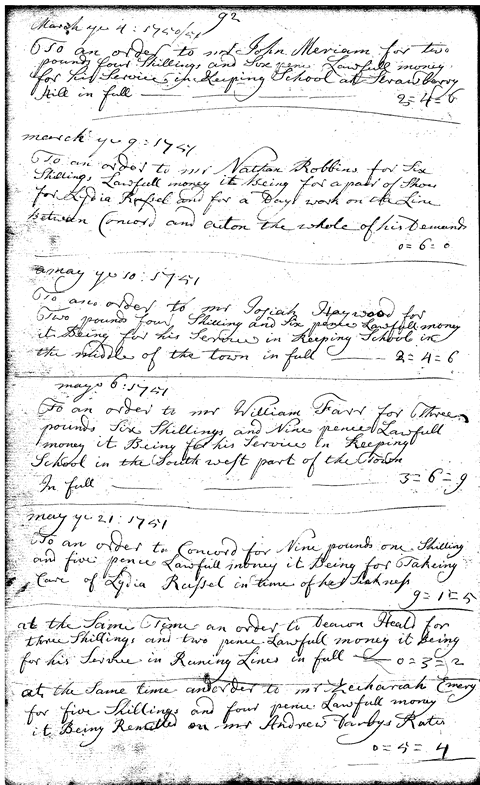 92
March ye 4: 1750/51
To an order to mr John Meriam for two
pounds four Shillings and Six pence Lawfull money
for his Service in Keeping School at Strawbarry
Hill in full
2=4=6
march ye 9: 1751
To an order to mr Nathan Robbins for Six
Shillings Lawfull money it Being for a pair of Shoes
for Lydia Russel and for a Days work on the Line
Between Concord and acton the whole of his Demands
0=6=0
may ye 10: 1751
To an order to mr Josiah Haywood for
Two pounds four Shilling and Six pence Lawfull money
it Being for his Service in Keeping School in
the middle of the town in full 2=4=6
may 6: 1751
To an order to mr William Farr for Three
pounds Six Shillings and Nine pence Lawfull
money it Being for his Service in Keeping
School in the South west part of the Town
In full 3=6=9
may ye 21: 1751
To an order to Concord for Nine pounds one Shilling
and five pence Lawfull money it Being for Takeing
Care of Lydia Russel in time of her Sickness
9=1=5
at the Same Time an order to Deacon Heald for
three Shillings and two pence Lawfull money it Being
for his Service in Runing Lines in full 0=3=2
at the Same time an order to mr Zechariah Emery
for five Shillings and four pence Lawfull money
it Being on mr Andrew Rates
0=5=4